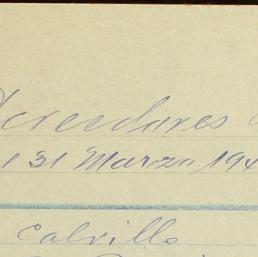 Acreedores
31 Marzo 194
Calvillo